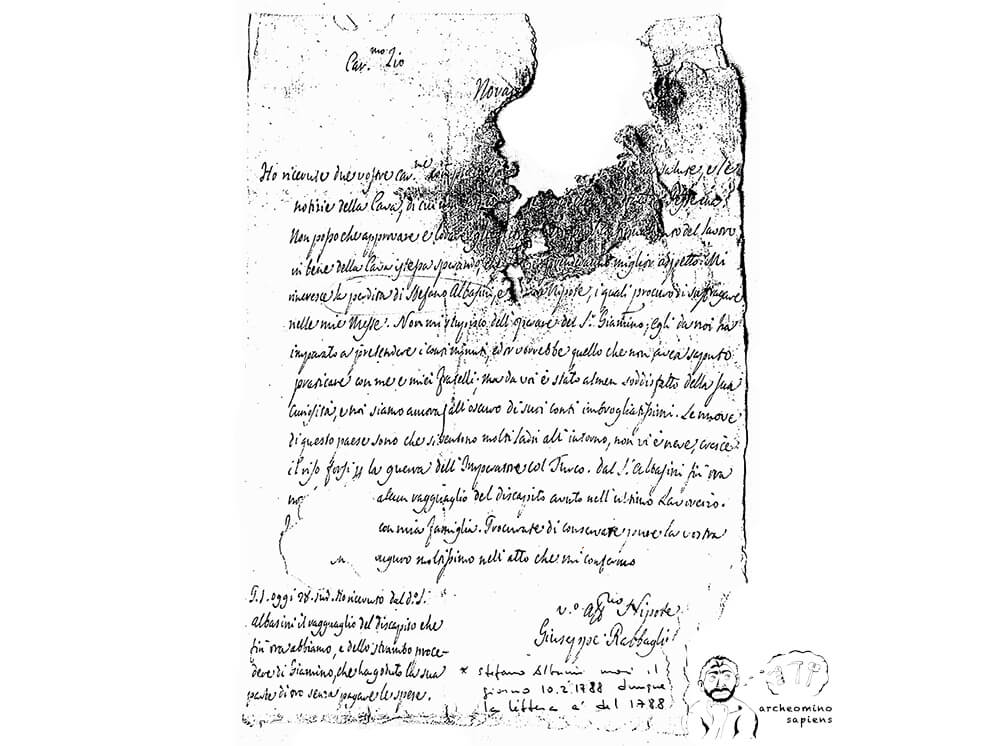 Car.mo Zio
Nova
Ho ricevute due vostre car.me
notizie della Cava, di cui
Non posso che approvare e loda del lavoro
in bene della Cava istessa sperando, miglior aspetto. Mi
rincresce la perdita di Stefano Albasini, e Nipote, i quali procuro di suffragare
nelle mie Messe. Non mi stupisco dell'operare del S.r Giamino; Egli da noi ha
imparato a pretendere i conti minuti, ed or vorrebbe quello che non avea saputo
praticare con me e miei fratelli; ma da voi è stato almen soddisfatto della sua
curiosità, e noi siamo ancora all'oscuro di suoi conti imbrogliatissimi. Le nuove
di questo paese sono che si sentono molti ladri all'intorno, non vi è neve, cresce
il riso forsi la guerra dell'Imperatore col Turco. dal S.r Albasini fin ora
no alcun ragguaglio del discapito avuto nell'ultimo Lavoreiro.
con mia famiglia. Procurate di conservare pure la vostra
auguro moltissimo nell'atto che mi confermo
P.S. oggi 28. sud. Ho ricevuto dal d.o S.r
Albasini il ragguaglio del discapito che
fin ora abbiamo, e dello strambo proce-
dere di Giamino, che ha goduto la sua
parte di oro senza pagare le spese.
V.o Aff.mo Nipote
Giuseppe Rabbagli
* Stefano Albasini morì il
giorno 10.2.1788 dunque
la lettera è del 1788
archeomino
sapiens